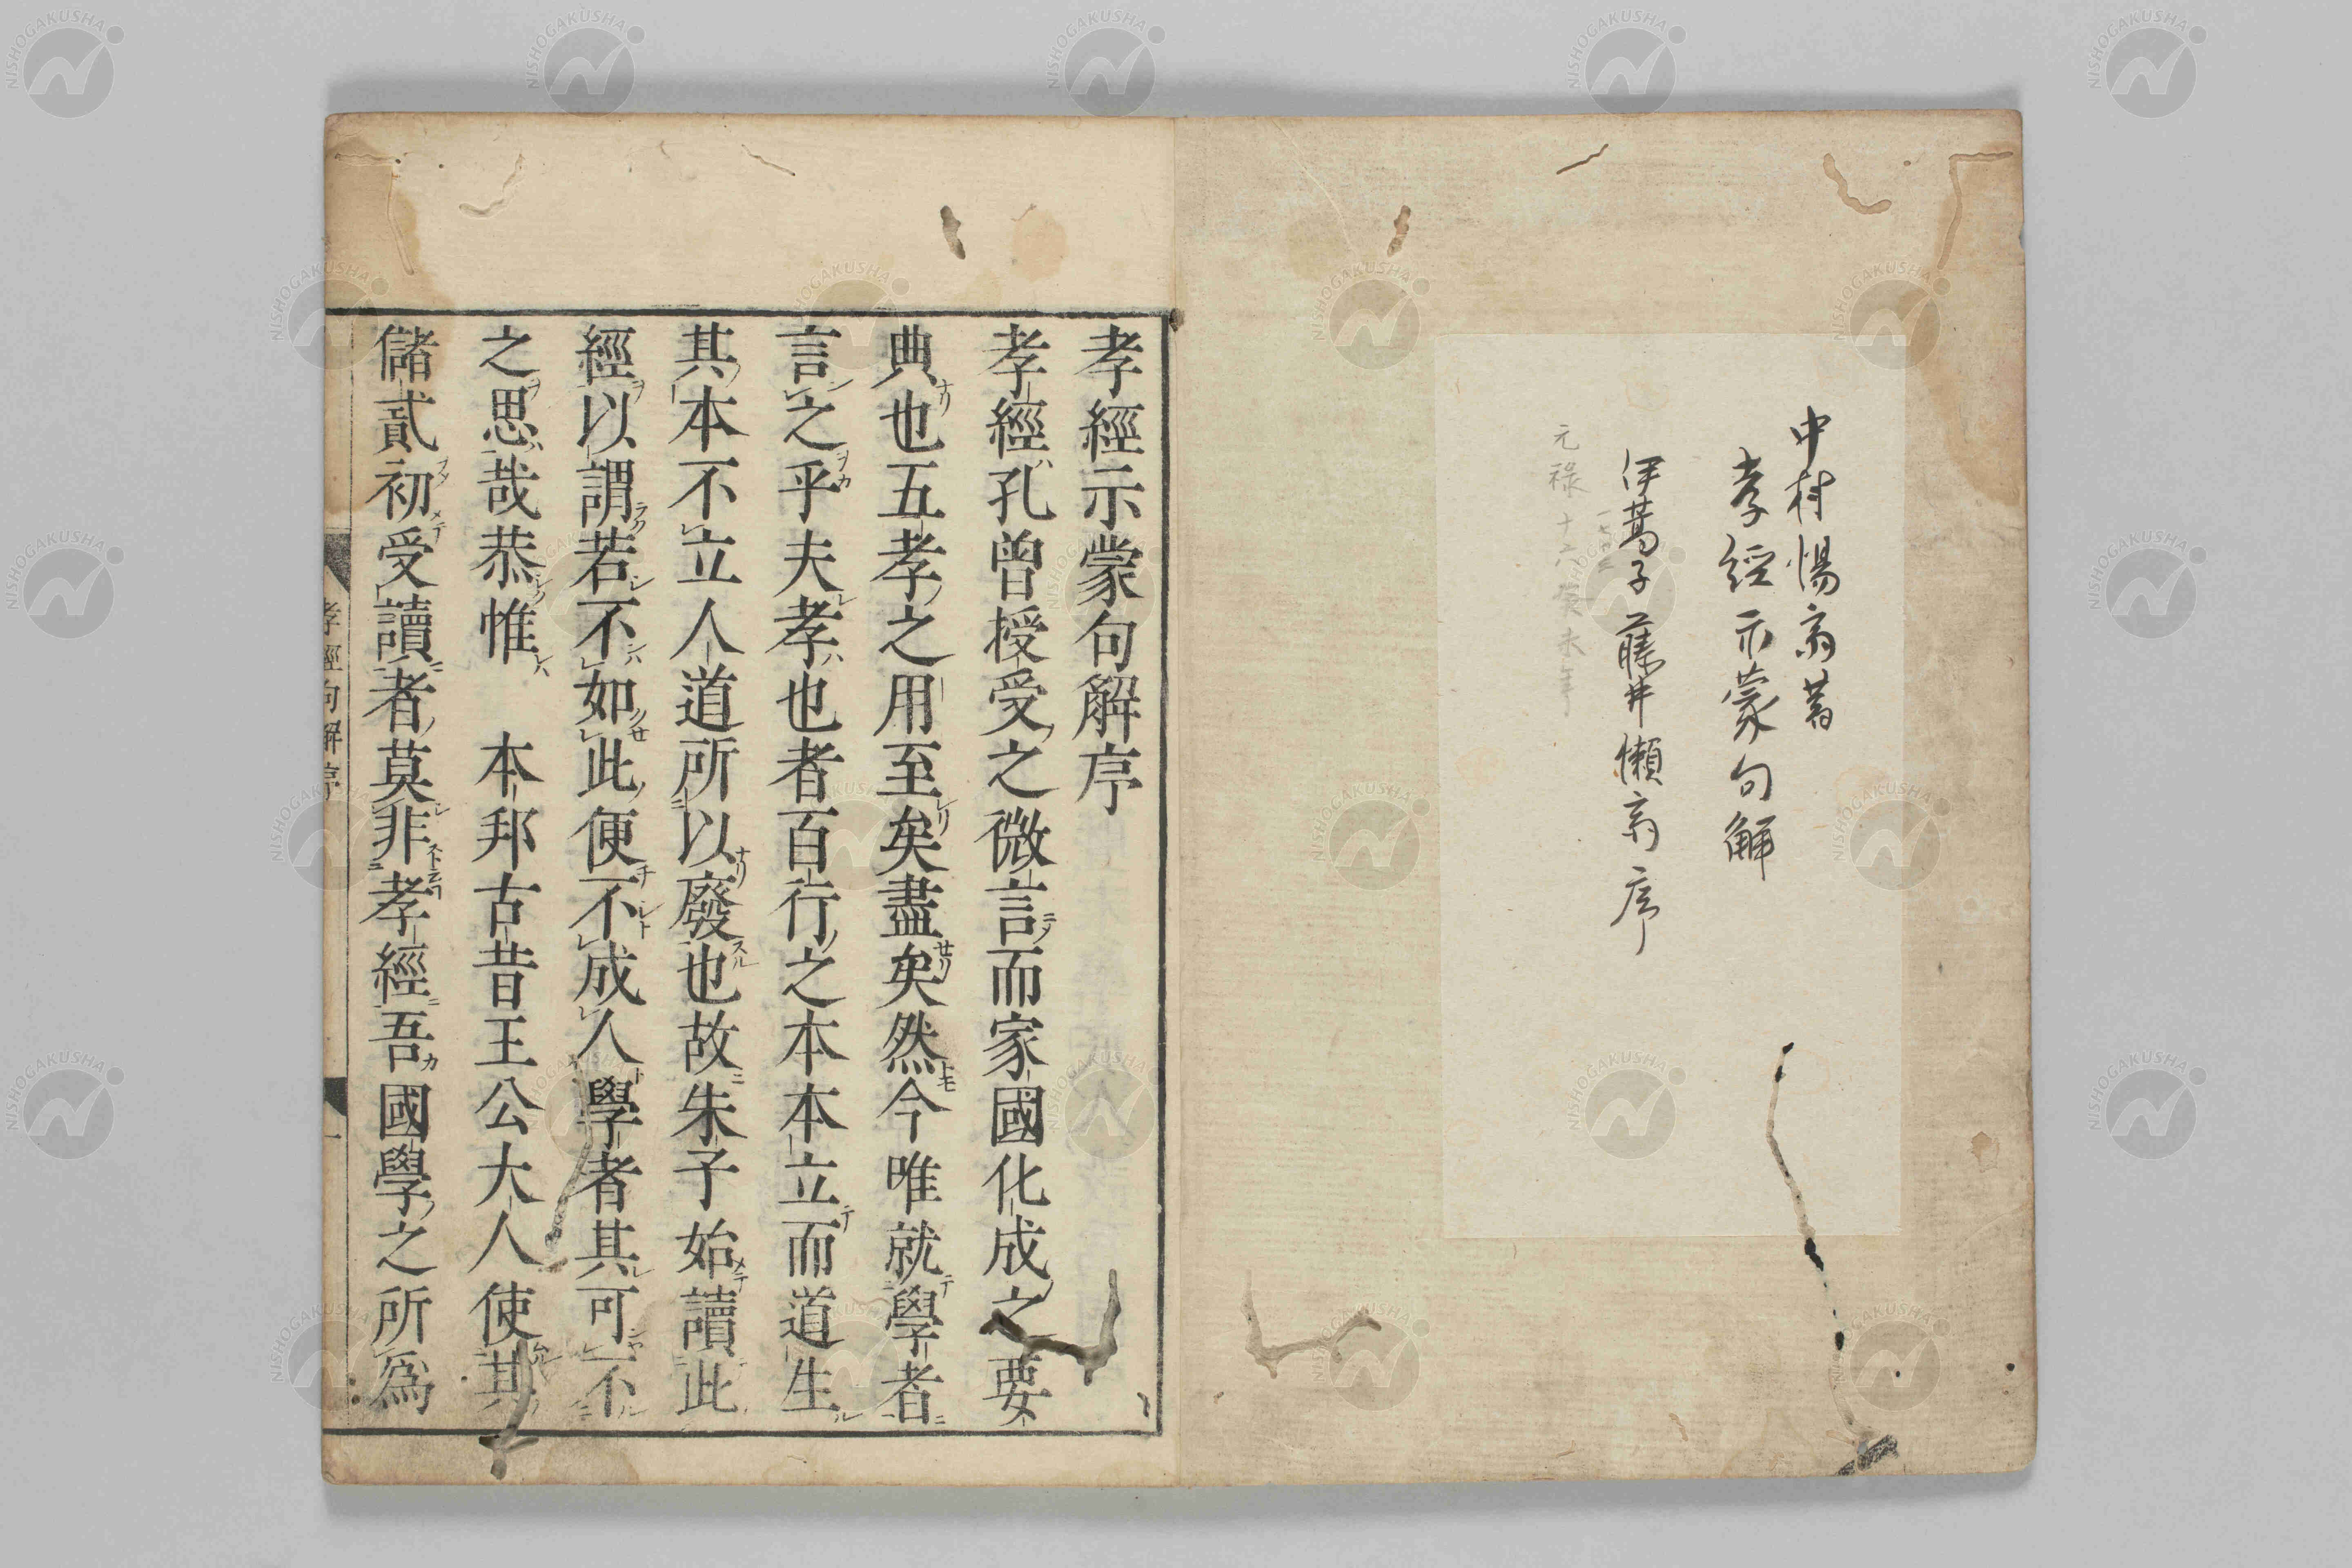 中村惕斎著
孝経示蒙句解
伊蒿子藤井懶斎序
元禄十六癸未年
孝經示蒙句解序
孝經孔曾授受之微言而家國化成之要
典也五孝之用至矣盡矣然今唯就學者
言之乎夫孝也者百行之本本立而道生
其本不立人道所以廢也故朱子始讀此
經以謂若不如此便不成人學者其可不
之思哉恭惟　本邦古昔王公大人使其
儲貳初受讀者莫非孝經吾國學之所爲
孝經句解序
一